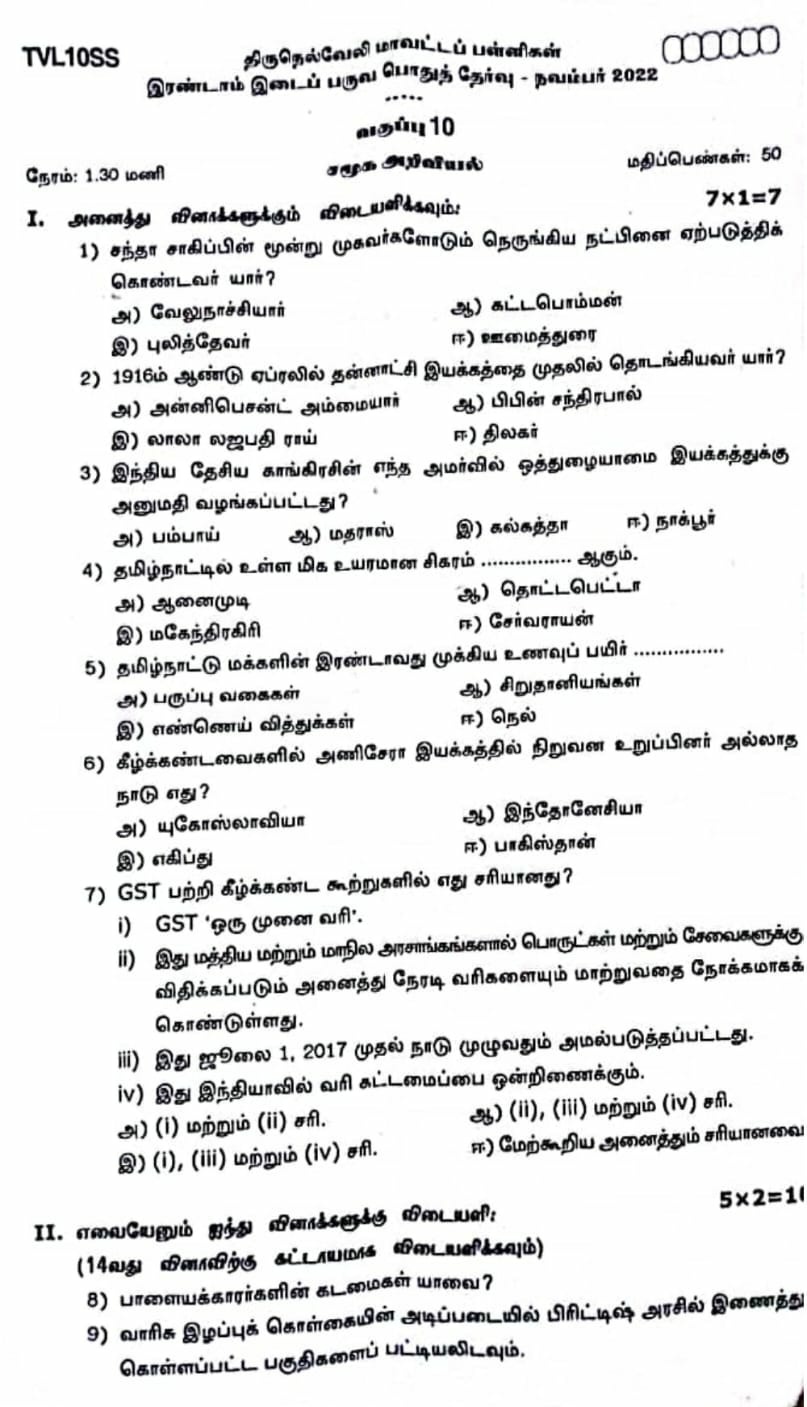 TVL10SS
திருநெல்வேலி மாவட்டப் பள்ளிகள்
இரண்டாம் இடைப் பருவ பொதுத் தேர்வு - நவம்பர் 2022
வகுப்பு 10
நேரம்: 1.30 மணி சமூக அறிவியல் மதிப்பெண்கள்: 50
I. அனைத்து வினாக்களுக்கும் விடையளிக்கவும்: 7×1=7
1) சந்தா சாகிப்பின் மூன்று முகவர்களோடும் நெருங்கிய நட்பினை ஏற்படுத்திக்
கொண்டவர் யார்?
அ) வேலுநாச்சியார் ஆ) கட்டபொம்மன்
இ) புலித்தேவர் ஈ) ஊமைத்துரை
2) 1916ம் ஆண்டு ஏப்ரலில் தன்னாட்சி இயக்கத்தை முதலில் தொடங்கியவர் யார்?
அ) அன்னிபெசன்ட் அம்மையார் ஆ) பிபின் சந்திரபால்
இ) லாலா லஜபதி ராய் ஈ) திலகர்
3) இந்திய தேசிய காங்கிரசின் எந்த அமர்வில் ஒத்துழையாமை இயக்கத்துக்கு
அனுமதி வழங்கப்பட்டது?
அ) பம்பாய் ஆ) மதராஸ் இ) கல்கத்தா ஈ) நாக்பூர்
4) தமிழ்நாட்டில் உள்ள மிக உயரமான சிகரம் ................ ஆகும்.
அ) ஆனைமுடி ஆ) தொட்டபெட்டா
இ) மகேந்திரகிரி ஈ) சேர்வராயன்
5) தமிழ்நாட்டு மக்களின் இரண்டாவது முக்கிய உணவுப் பயிர் ................
அ) பருப்பு வகைகள் ஆ) சிறுதானியங்கள்
இ) எண்ணெய் வித்துக்கள் ஈ) நெல்
6) கீழ்க்கண்டவைகளில் அணிசேரா இயக்கத்தில் நிறுவன உறுப்பினர் அல்லாத
நாடு எது?
அ) யுகோஸ்லாவியா ஆ) இந்தோனேசியா
இ) எகிப்து ஈ) பாகிஸ்தான்
7) GST பற்றி கீழ்க்கண்ட கூற்றுகளில் எது சரியானது?
i) GST 'ஒரு முனை வரி'.
ii) இது மத்திய மற்றும் மாநில அரசாங்கங்களால் பொருட்கள் மற்றும் சேவைகளுக்கு
விதிக்கப்படும் அனைத்து நேரடி வரிகளையும் மாற்றுவதை நோக்கமாகக்
கொண்டுள்ளது.
iii) இது ஜூலை 1, 2017 முதல் நாடு முழுவதும் அமல்படுத்தப்பட்டது.
iv) இது இந்தியாவில் வரி கட்டமைப்பை ஒன்றிணைக்கும்.
அ) (i) மற்றும் (ii) சரி. ஆ) (ii), (iii) மற்றும் (iv) சரி.
இ) (i), (iii) மற்றும் (iv) சரி. ஈ) மேற்கூறிய அனைத்தும் சரியானவை
II. எவையேனும் ஐந்து வினாக்களுக்கு விடையளி: 5×2=10
(14வது வினாவிற்கு கட்டாயமாக விடையளிக்கவும்)
8) பாளையக்காரர்களின் கடமைகள் யாவை?
9) வாரிசு இழப்புக் கொள்கையின் அடிப்படையில் பிரிட்டிஷ் அரசில் இணைத்து
கொள்ளப்பட்ட பகுதிகளைப் பட்டியலிடவும்.